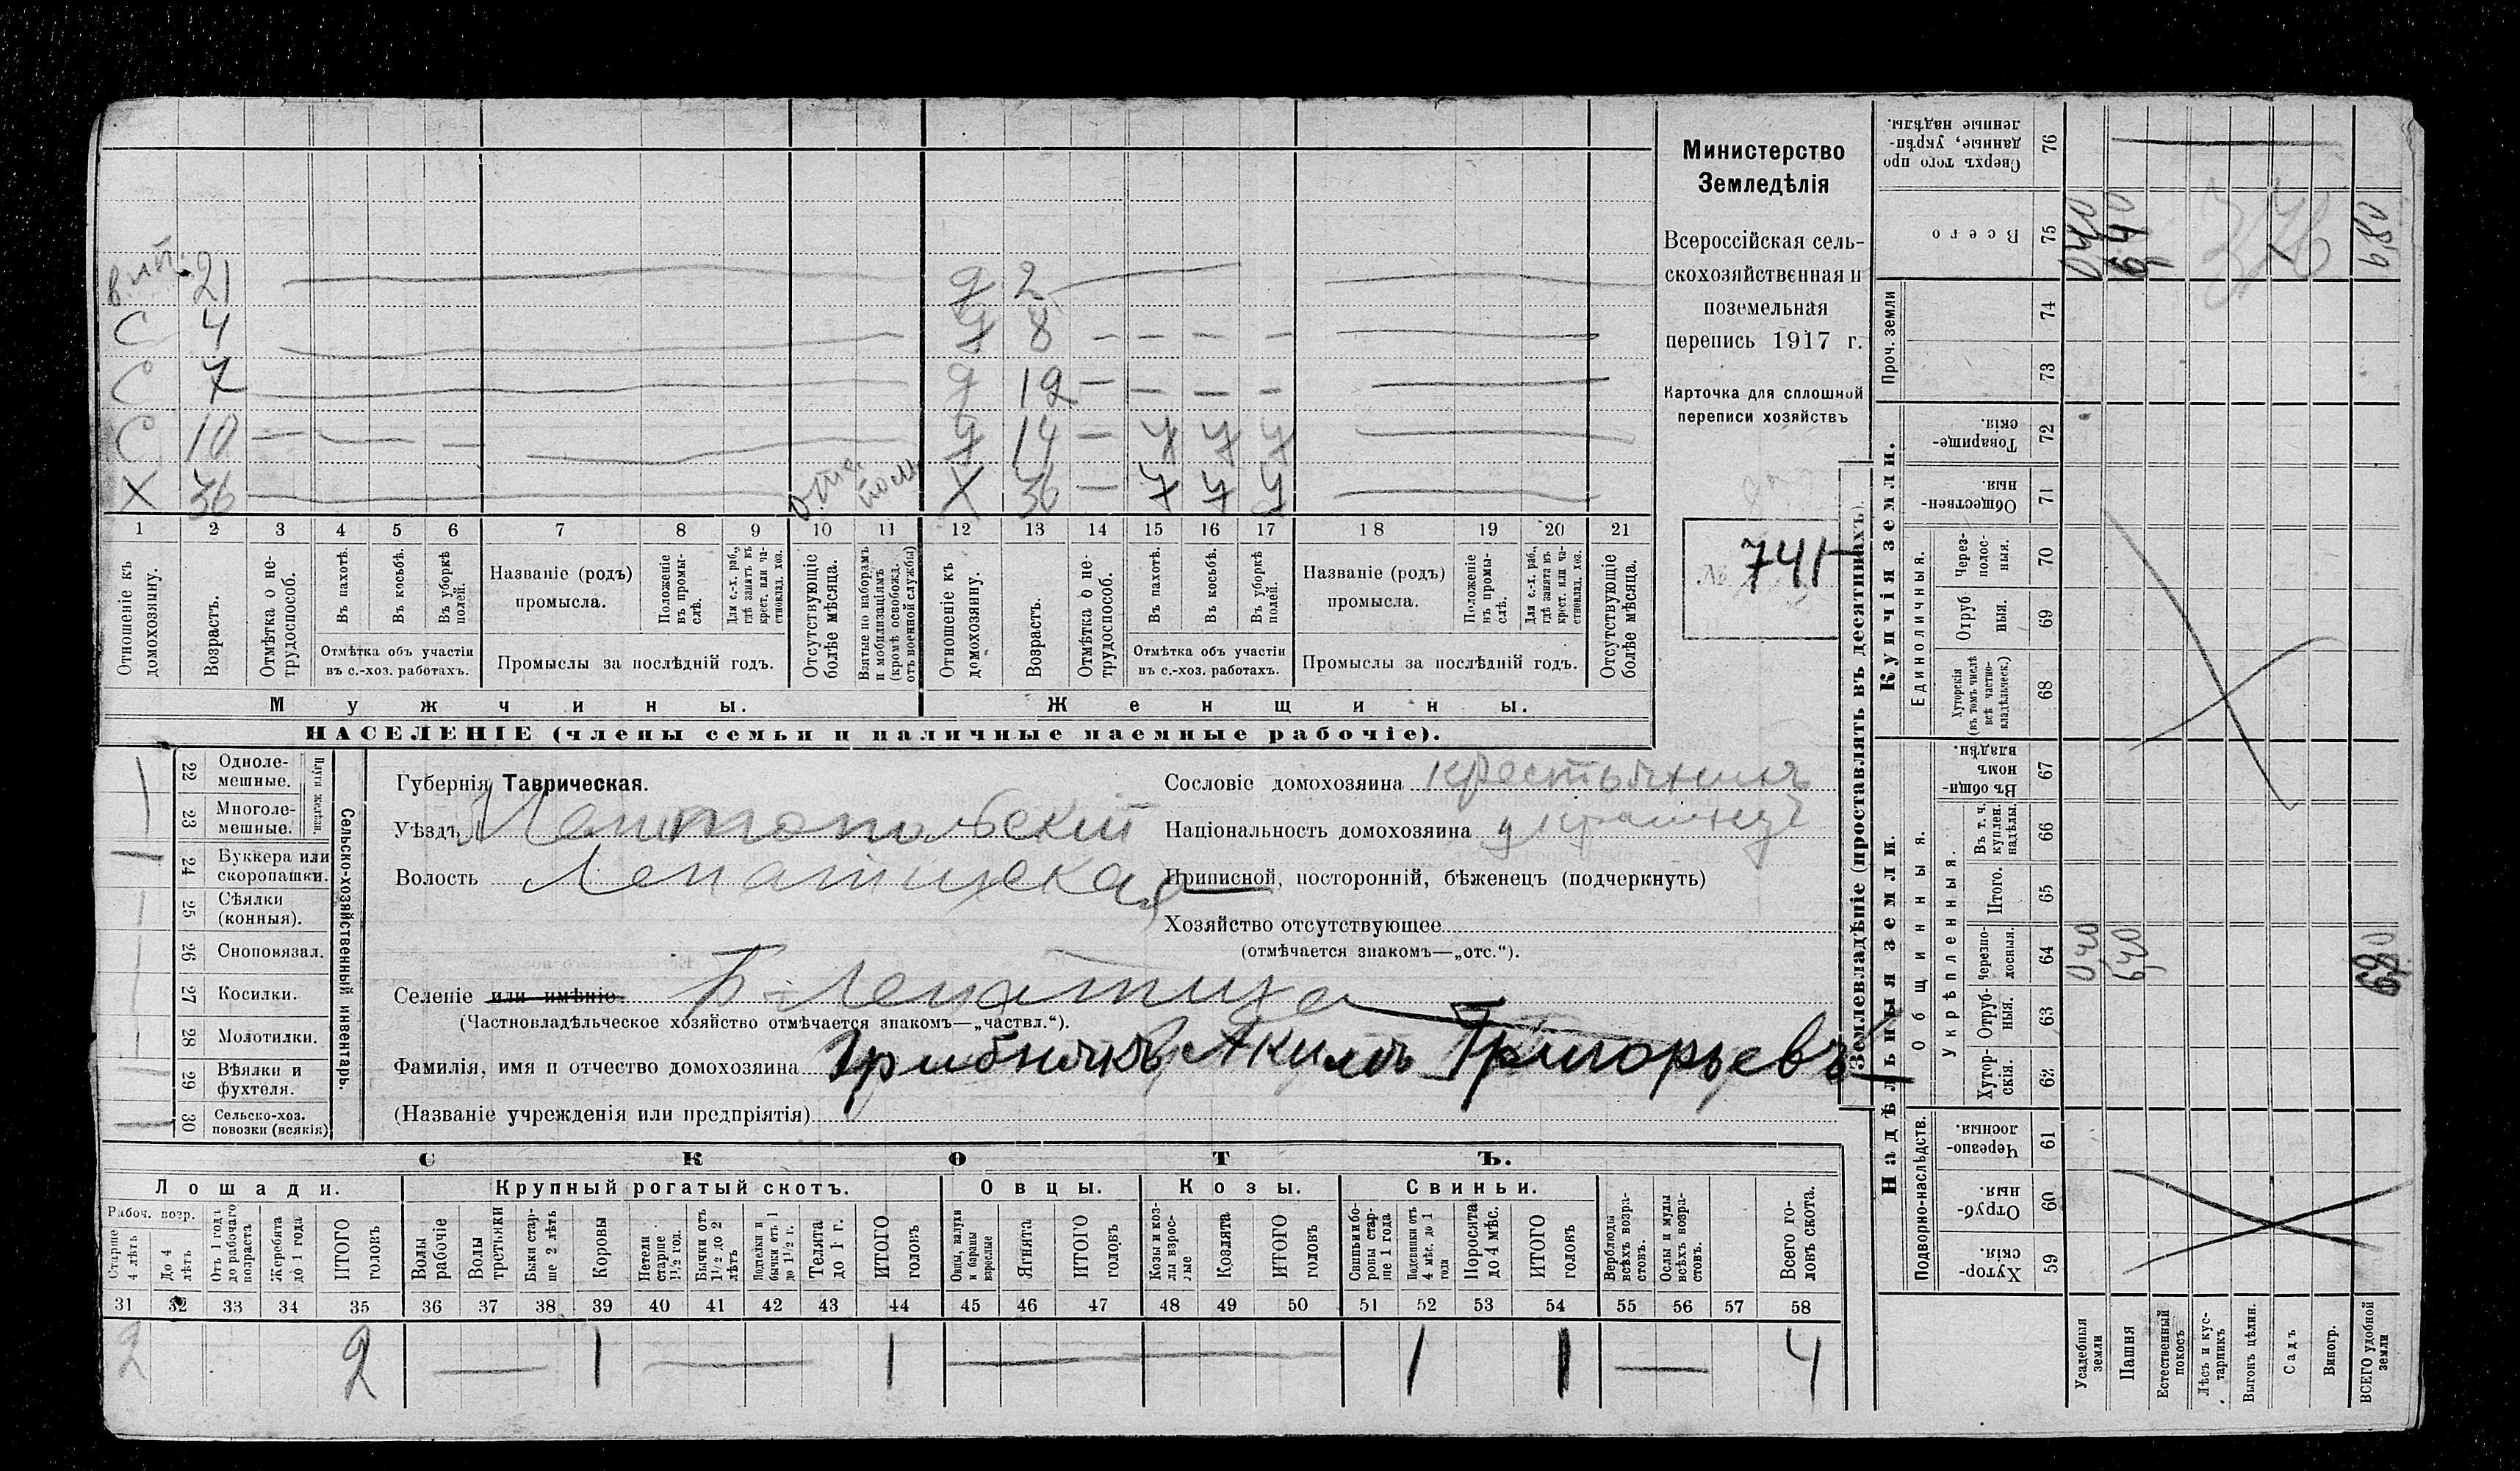 Министерство
Земледѣлія
Всероссійская сель-
скохозяйственная и
поземельная
перепись 1917 г.
Карточка для сплошной
переписи хозяйствъ
№ 741
21 д 2
С 4 д 8 — — — —
С 7 д 12 — — — —
С 10 — — — д 14 —
X 36 X 36 —
1 2 3 4 5 6 7 8 9 10 11 12 13 14 15 16 17 18 19 20 21
Отношеніе къ домохозяину.
Возрастъ.
Отмѣтка о не-трудоспособ.
Въ пахотѣ.
Въ косьбѣ.
Въ уборкѣ полей.
Отмѣтка объ участіи
въ с.-хоз. работахъ.
Названіе (родъ)
промысла.
Положеніе въ промы-слѣ.
Для с.-х. раб., гдѣ занятъ въ крест. или ча-стновлад. хоз.
Промыслы за послѣдній годъ.
Отсутствующіе болѣе мѣсяца.
Взятые по наборамъ и мобилизаціямъ (кромѣ освобожд. отъ военной службы)
Отношеніе къ домохозяину.
Возрастъ.
Отмѣтка о не-трудоспособ.
Въ пахотѣ.
Въ косьбѣ.
Въ уборкѣ полей.
Отмѣтка объ участіи
въ с.-хоз. работахъ.
Названіе (родъ)
промысла.
Положеніе въ промы-слѣ.
Для с.-х. раб., гдѣ занята въ крест. или ча-стновлад. хоз.
Промыслы за послѣдній годъ.
Отсутствующіе болѣе мѣсяца.
Мужчины. Женщины.
НАСЕЛЕНІЕ (члены семьи и наличные наемные рабочіе).
Сельско-хозяйственный инвентарь.
Плуги желѣзн.
22 Одноле-мешные.
23 Многоле-мешные.
24 Буккера или скоропашки.
25 Сѣялки (конныя).
26 Сноповязал.
27 Косилки.
28 Молотилки.
29 Вѣялки и фухтеля.
30 Сельско-хоз. повозки (всякія)
Губернія Таврическая.
Уѣздъ Мелитопольскій
Волость Лепатихская
Селеніе или имѣніе Б-Лепатиха
(Частновладѣльческое хозяйство отмѣчается знакомъ—„частвл.“).
Фамилія, имя и отчество домохозяина Грибнякъ Акимъ Григорьевъ
(Названіе учрежденія или предпріятія)
Сословіе домохозяина крестьянинъ
Національность домохозяина украинецъ
Приписной, посторонній, бѣженецъ (подчеркнуть)
Хозяйство отсутствующее
(отмѣчается знакомъ—„отс.“).
СКОТЪ.
Лошади. Крупный рогатый скотъ. Овцы. Козы. Свиньи.
Рабоч. возр.
Старше 4 лѣтъ
До 4 лѣтъ
Отъ 1 года до рабочаго возраста
Жеребята до 1 года
ИТОГО головъ
Волы рабочіе
Волы третьяки
Быки стар-ше 2 лѣтъ
Коровы
Нетели старше 1½ год.
Бычки отъ 1½ до 2 лѣтъ
Подтелки и бычки отъ 1 до 1½ г.
Телята до 1 г.
ИТОГО головъ
Овцы, валухи и бараны взрослые
Ягнята
ИТОГО головъ
Козы и коз-лы взрос-лые
Козлята
ИТОГО головъ
Свиньи и бо-ровы стар-ше 1 года
Подсвинки отъ 4 мѣс. до 1 года
Поросята до 4 мѣс.
ИТОГО головъ
Верблюды всѣхъ возра-стовъ.
Ослы и мулы всѣхъ возра-стовъ.
Всего го-ловъ скота.
31 32 33 34 35 36 37 38 39 40 41 42 43 44 45 46 47 48 49 50 51 52 53 54 55 56 57 58
2 2 — 1 — 1 — 1 1 — 4
Землевладѣніе (проставлять въ десятинахъ)
Купчія земли.
Надѣльныя земли.
Проч. земли
Единоличныя.
Общинныя.
Укрѣпленныя.
Подворно-наслѣдств.
76 Сверхъ того про данные, укрѣп-ленные надѣлы.
75 Всего 040 640 680
74
73
72 Товарище-скія.
71 Обществен-ныя.
70 Через-полос-ныя.
69 Отруб ныя.
68 Хуторскія (въ томъ числѣ всѣ частно-владѣльческ.)
67 Въ общи-номъ владѣн.
66 Въ т. ч. куплен. надѣлы.
65 Итого.
64 Черезпо-лосныя. 040 640 680
63 Отруб-ныя.
62 Хутор-скія.
61 Черезпо-лосныя.
60 Отруб-ныя.
59 Хутор-скія.
Усадебныя земли
Пашня
Естественный покосъ
Лѣсъ и кус-тарникъ
Выгонъ цѣлин.
Садъ
Виногр.
ВСЕГО удобной земли